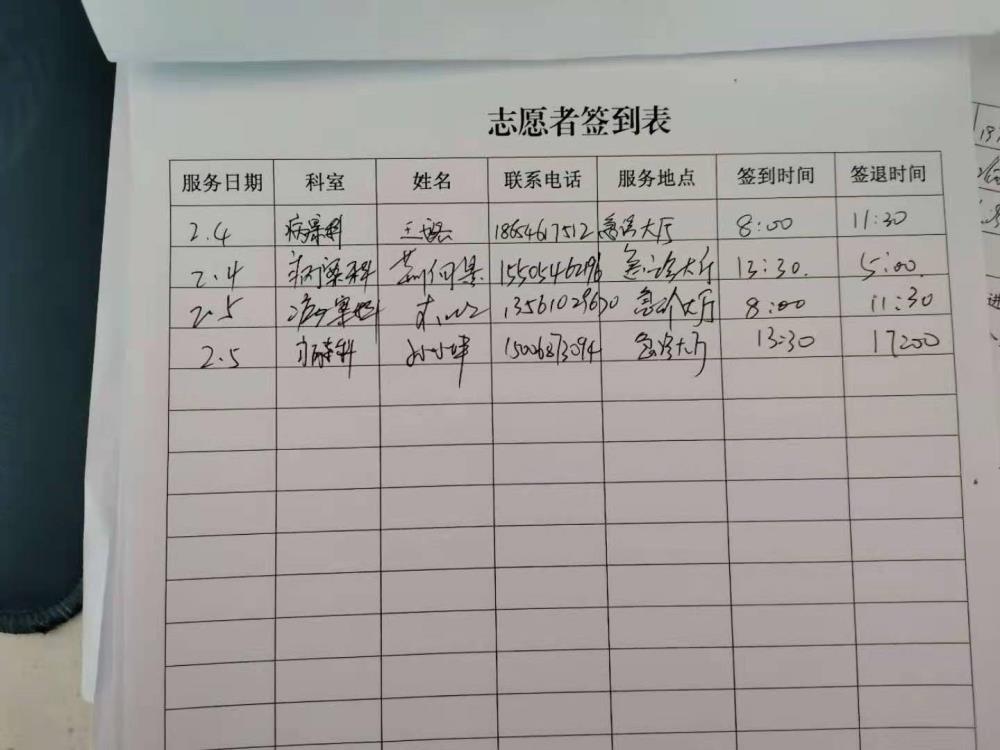 志愿者签到表
服务日期 科室 姓名 联系电话 服务地点 签到时间 签退时间
2.4 病案科 18654617512 急诊大厅 8:00 11:30
2.4 病案科 15505462196 急诊大厅 13:30. 5:00.
2.5 病案科 急诊大厅 8:00 11:30
2.5 病案科 15006873094 急诊大厅 13:30 17:00